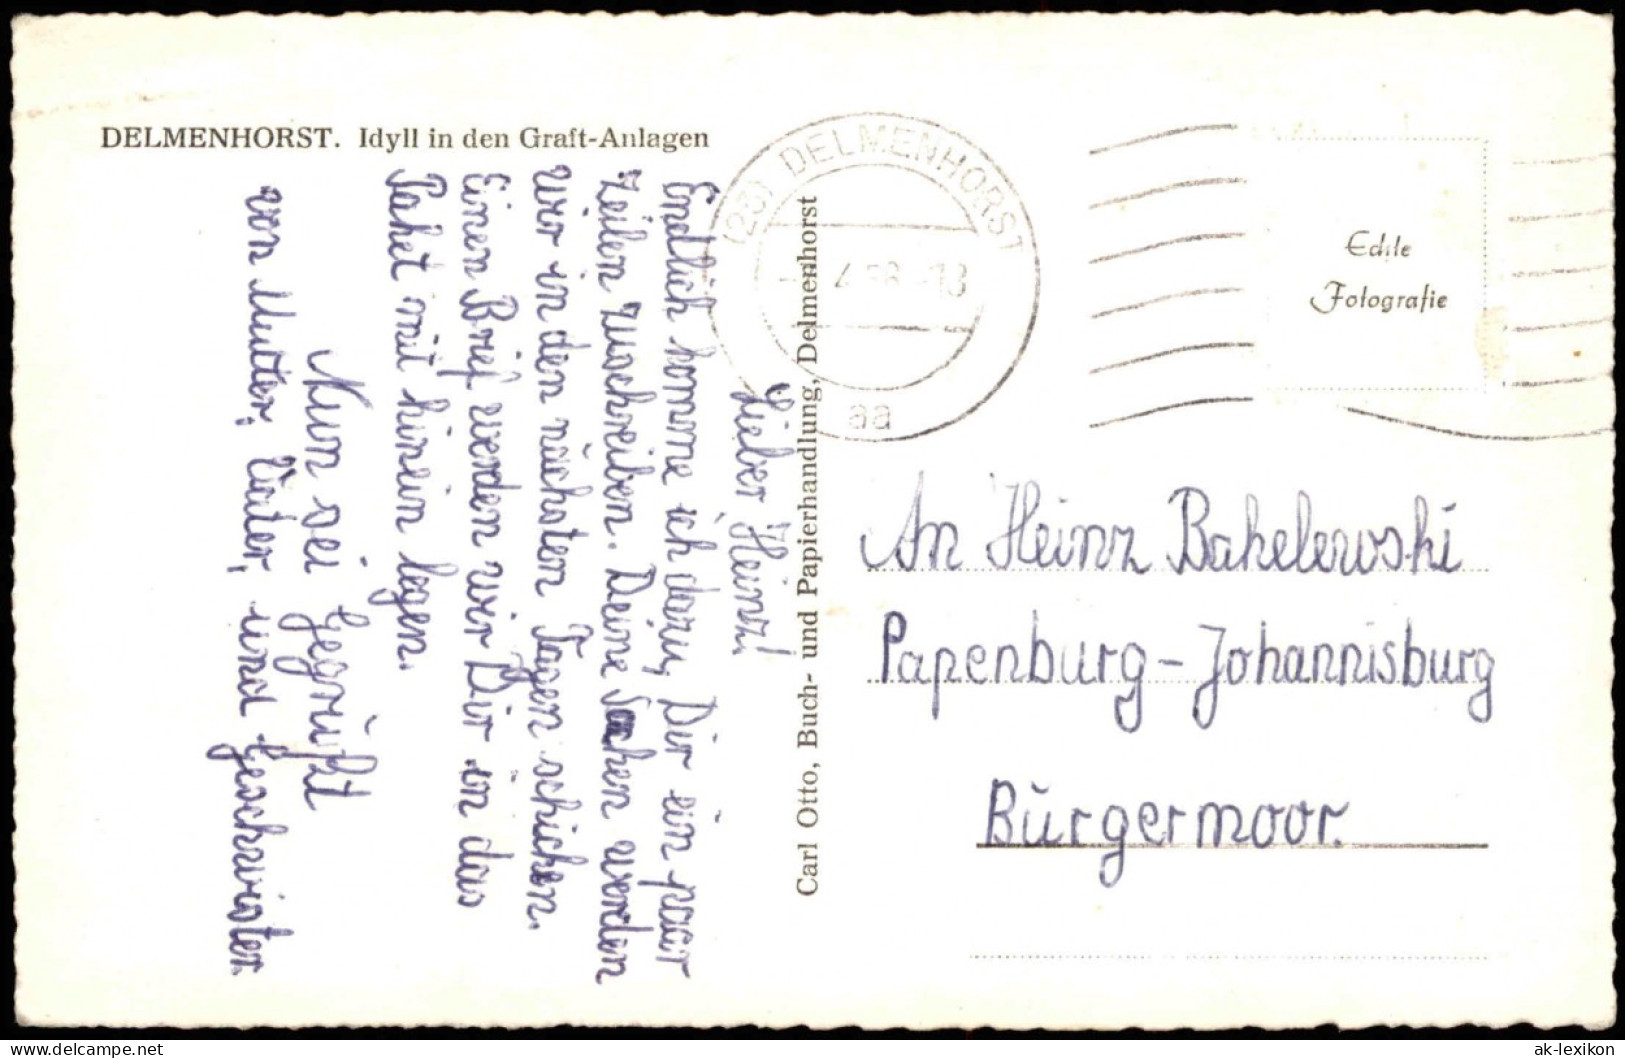 DELMENHORST. Idyll in den Graft-Anlagen
Lieber Heinz!
Endlich komme ich dazu, Dir ein paar
Zeilen zuschreiben. Deine Sachen werden
wir in den nächsten Tagen schicken.
Einen Brief werden wir Dir in das
Paket mit hinein legen.
Nun sei Gegrüßt
von Mutter, Vater, und Geschwister.
Carl Otto, Buch- und Papierhandlung, Delmenhorst
(23) DELMENHORST
4.58.-18
aa
Echte
Fotografie
An Heinz Bakelewski
Papenburg-Johannisburg
Bürgermoor.
www.delcampe.net
ak-lexikon